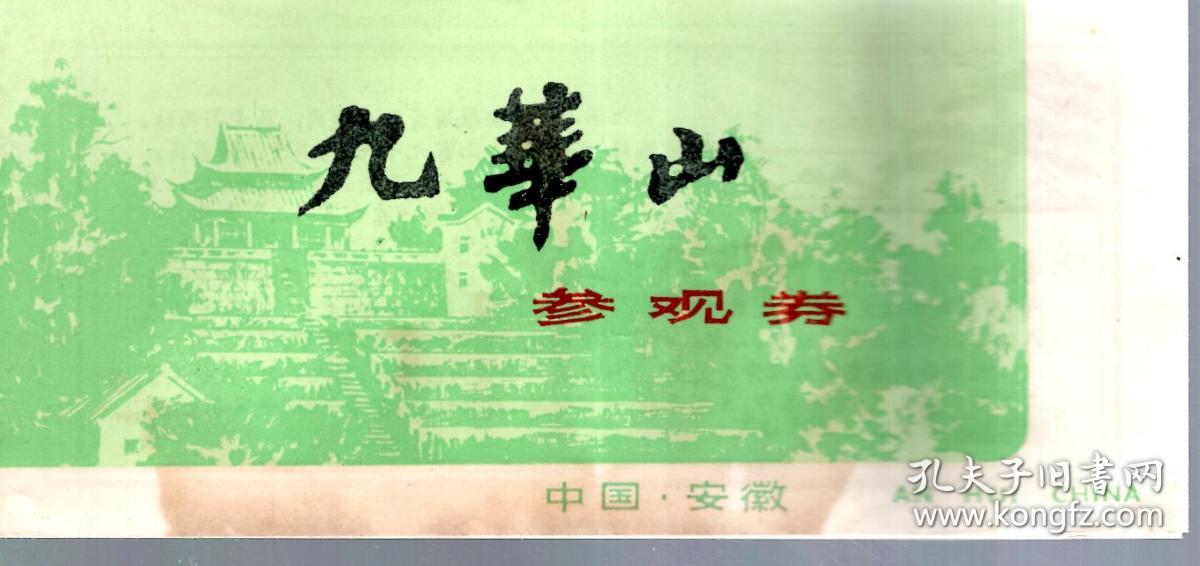 九華山
参观券
中国·安徽 AN HUI CHINA
孔夫子旧书网
www.kongfz.com